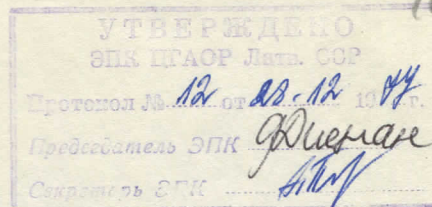 УТВЕРЖДЕНО
ЭПК ЦГАОР Латв. ССР
Протокол № 12 от 28.12 1977 г.
Председатель ЭПК
Секретарь ЭПК